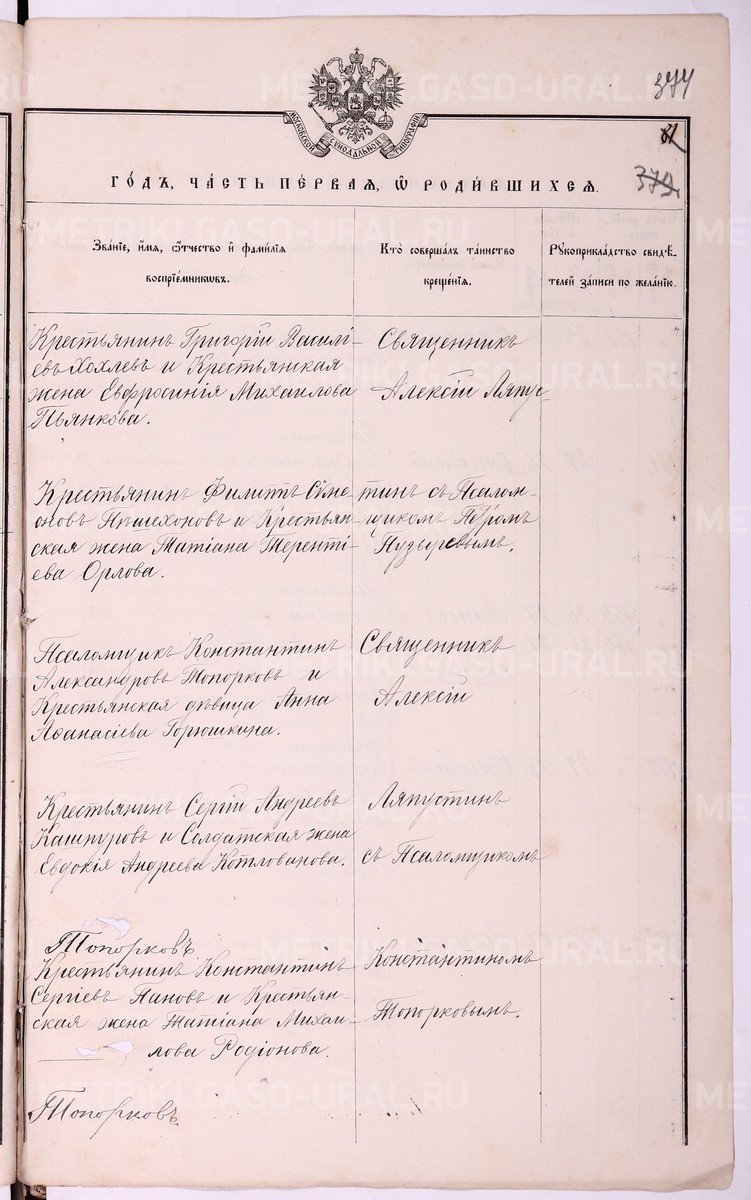 METRIKI.GASO-URAL.RU
374
МОСКОВСКОЙ СѴНОДАЛЬНОЙ ТИПОГРАФІИ
372.
ГО́ДЪ, ЧА́СТЬ ПЕ́РВАЯ, Ѡ҆ РОДИ́ВШИХСЯ.
Зва́нїе, и҆́мя, ѻ҆́тчество и҆ фами́лїя
воспрїе́мникѡвъ.
Кто̀ соверша́лъ та́инство
креще́нїя.
Рꙋкоприкла́дство свидѣ́-
телей за́писи по жела́нїю.
Крестьянинъ Григорій Василі-
евъ Хохлевъ и Крестьянская
жена Евфросинія Михаилова
Пьянкова.
Священникъ
Алексій Ляпус-
Крестьянинъ Филиппъ Сѵме-
оновъ Пѣшехоновъ и Крестьян-
ская жена Татіана Теренті-
ева Орлова.
тинъ съ Псалом-
щикомъ Петромъ
Пузыревымъ.
Псаломщикъ Константинъ
Александровъ Топорковъ и
Крестьянская дѣвица Анна
Аѳанасіева Горюшкина.
Священникъ
Алексій
Крестьянинъ Сергій Андреевъ
Кашпуровъ и Солдатская жена
Евдокія Андреева Котлованова.
Ляпустинъ
съ Псаломщикомъ
Топорковъ
Крестьянинъ Константинъ
Сергіевъ Пановъ и Крестьян-
ская жена Татіана Михаи-
лова Родіонова.
Константиномъ
Топорковымъ.
Топорковъ